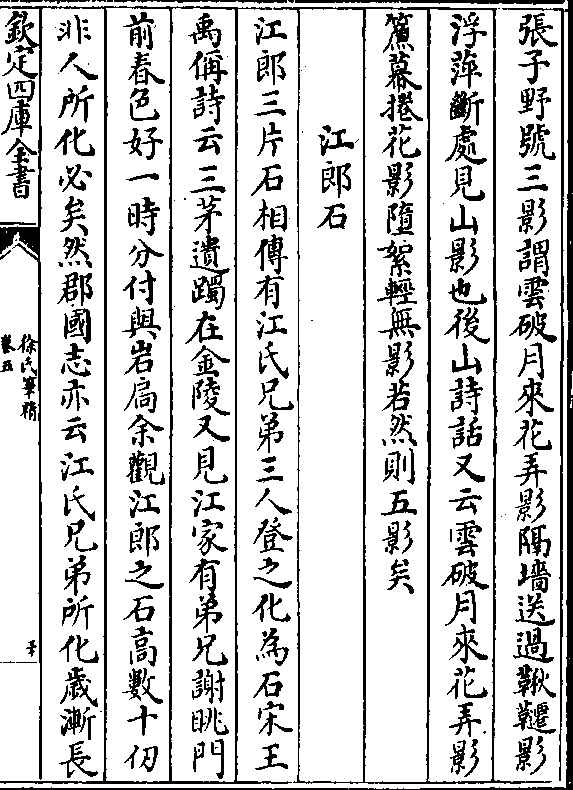 張子野號三影謂雲破月來花弄影隔墻送過鞦韆影
浮萍斷處見山影也後山詩話又云雲破月來花弄影
簾幕捲花影墮絮輕無影若然則五影矣
江郎石
江郎三片石相傳有江氏兄弟三人登之化為石宋王
禹偁詩云三茅遺躅在金陵又見江家有弟兄謝眺門
前春色好一時分付與岩扃余觀江郎之石高數十仞
非人所化必矣然郡國志亦云江氏兄弟所化歲漸長
欽定四庫全書
徐氏筆精
卷五